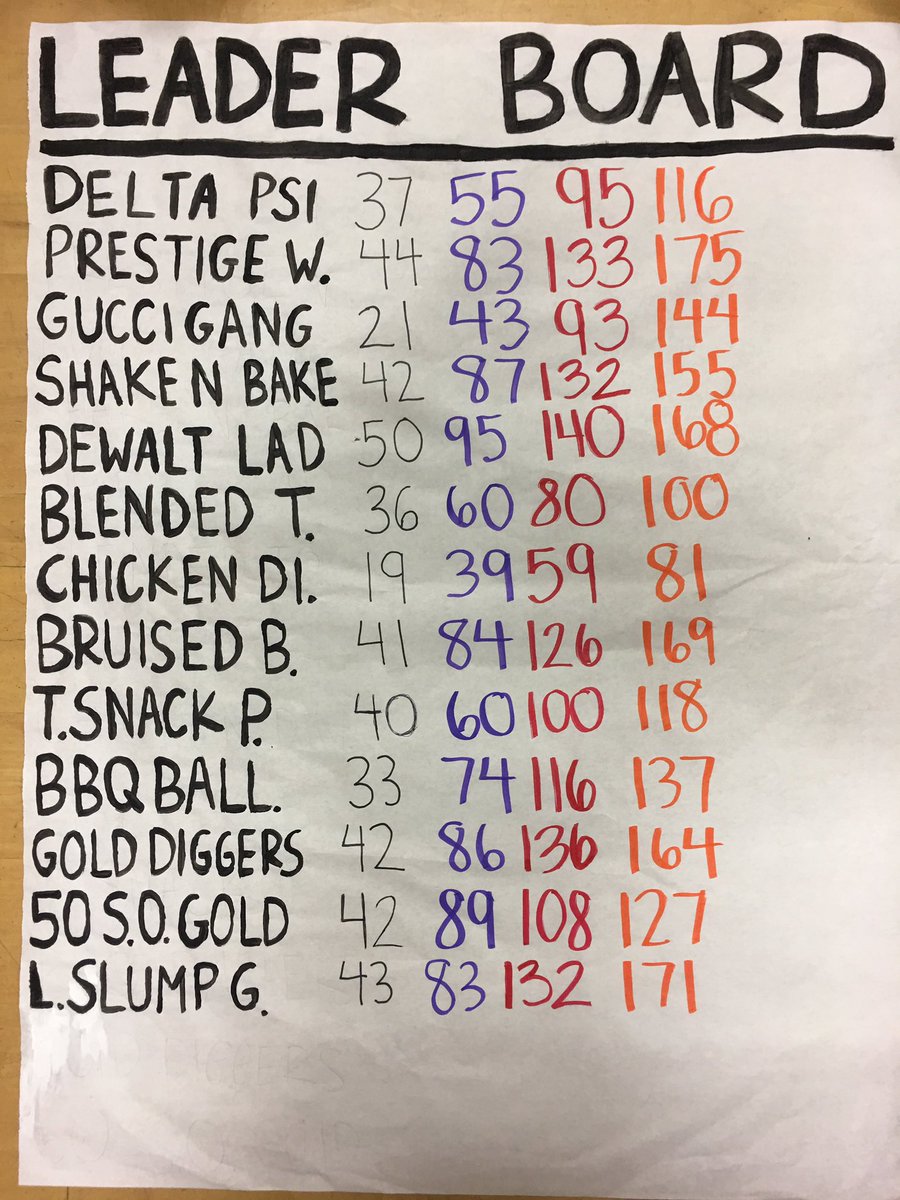 LEADER BOARD
DELTA PSI 37 55 95 116
PRESTIGE W. 44 83 133 175
GUCCI GANG 21 43 93 144
SHAKE N BAKE 42 87 132 155
DEWALT LAD 50 95 140 168
BLENDED T. 36 60 80 100
CHICKEN DI. 19 39 59 81
BRUISED B. 41 84 126 169
T. SNACK P. 40 60 100 118
BBQ BALL. 33 74 116 137
GOLD DIGGERS 42 86 136 164
50 S.O. GOLD 42 89 108 127
L. SLUMP G. 43 83 132 171